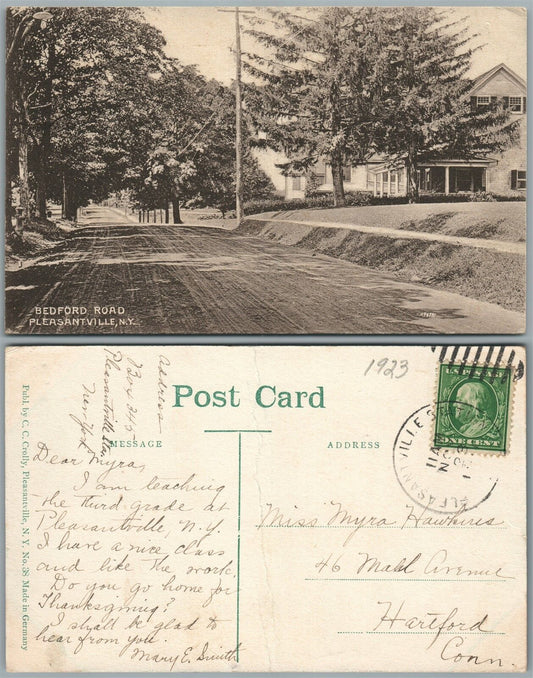 BEDFORD ROAD
PLEASANTVILLE, N.Y.
Address
Box 245
Pleasantville Sta.
New York
1923
Post Card
MESSAGE
ADDRESS
U.S. POSTAGE
ONE CENT
PLEASANTVILLE
NOV
11 AM
Publ. by C. C. Crolly, Pleasantville, N. Y. No. 38 Made in Germany
Dear Myra,
I am teaching
the third grade at
Pleasantville, N. Y.
I have a nice class
and like the work.
Do you go home for
Thanksgiving?
I shall be glad to
hear from you.
Mary E. Smith
Miss Myra Hawkins
46 Avenue
Hartford
Conn.